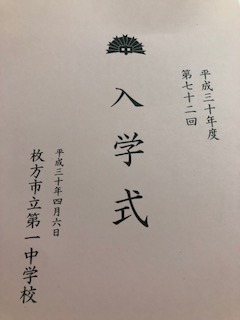 平成三十年度
第七十二回
入学式
平成三十年四月六日
枚方市立第一中学校